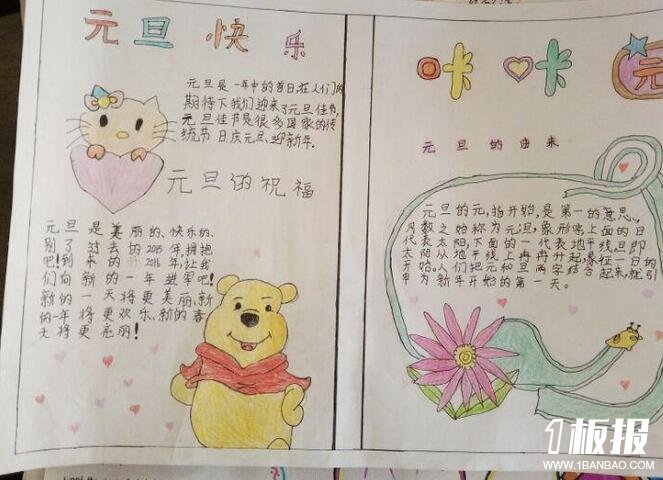 元旦快乐
元旦是一年中的首日,在人们的
期待下我们迎来了元旦佳节,
元旦佳节是很多国家的传
统节日.庆元旦、迎新年.
元旦的祝福
元旦是美丽的、快乐的、
别了过去的2015年,拥抱
吧!到来的2016年,让我
们向新的一年进军吧!
新的一天将更美丽、新
的一年将更欢乐、新的春
天将更亮丽!
咔咔元
元旦的由来
元旦的元,指开始,是第一的意思,
凡数之始称为元;旦,象形字上面的日
代表太阳,下面的一代表地平线.旦即
太阳从地平线上冉冉升起,象征一日的
开始。人们把元和旦两字结合起来,就引
申为新年开始的第一天。
1板报
WWW.1BANBAO.COM